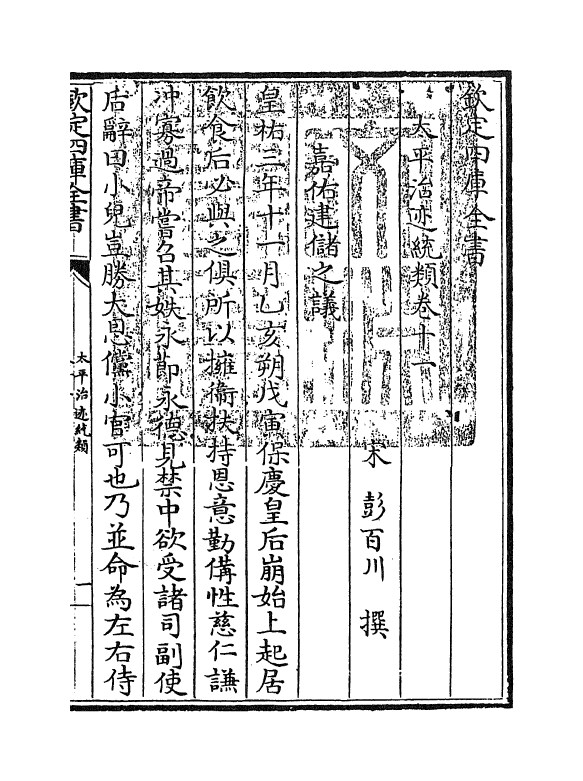 欽定四庫全書
太平治迹統類卷十一
宋 彭百川 撰
嘉佑建儲之議
皇祐三年十一月乙亥朔戊寅保慶皇后崩始上起居
飲食后必與之俱所以擁衞扶持恩意勤備性慈仁謙
冲寡過帝嘗召其姪永節永德見禁中欲受諸司副使
后辭曰小兒豈勝大恩儻小官可也乃並命為左右侍
欽定四庫全書
太平治迹統類
一